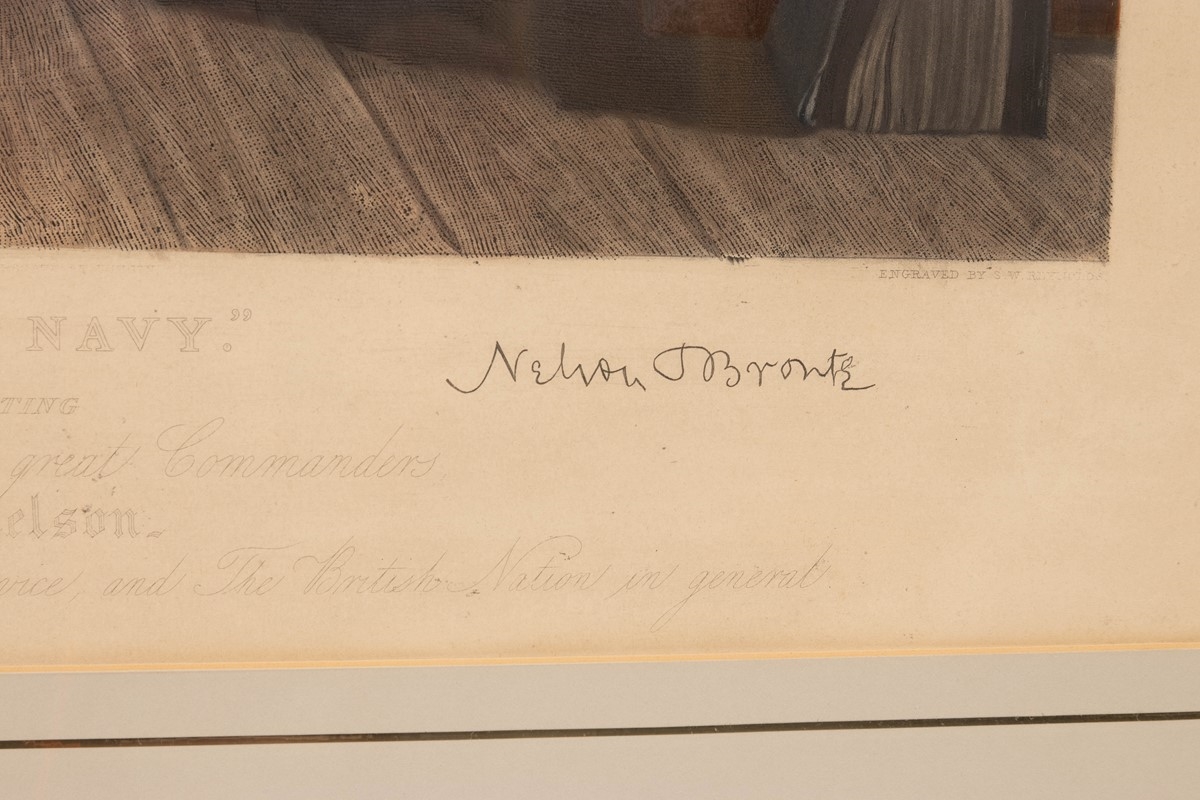 ENGRAVED BY S. W. REYNOLDS
NAVY.”
Nelson Bronte
TING
great Commanders
elson.
vice, and The British Nation in general